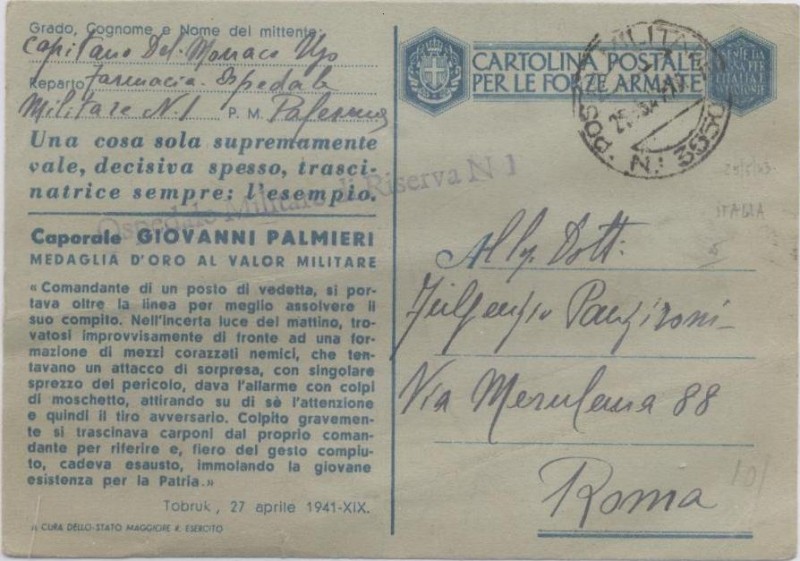 Grado, Cognome e Nome del mittente
Capitano Del Monaco Ugo
Reparto Farmacia Ospedale
Militare N. 1 P. M. Palermo
Una cosa sola supremamente
vale, decisiva spesso, trasci-
natrice sempre: l'esempio.
Ospedale Militare di Riserva N 1
Caporale GIOVANNI PALMIERI
MEDAGLIA D'ORO AL VALOR MILITARE
«Comandante di un posto di vedetta, si por-
tava oltre la linea per meglio assolvere il
suo compito. Nell'incerta luce del mattino, tro-
vatosi improvvisamente di fronte ad una for-
mazione di mezzi corazzati nemici, che ten-
tavano un attacco di sorpresa, con singolare
sprezzo del pericolo, dava l'allarme con colpi
di moschetto, attirando su di sè l'attenzione
e quindi il tiro avversario. Colpito gravemen-
te si trascinava carponi dal proprio coman-
dante per riferire e, fiero del gesto compiu-
to, cadeva esausto, immolando la giovane
esistenza per la Patria.»
Tobruk, 27 aprile 1941-XIX.
A CURA DELLO STATO MAGGIORE R. ESERCITO
CARTOLINA POSTALE
PER LE FORZE ARMATE
POSTA MILITARE
N. 3550
ITALIA
All. Dott.
Fulgenzio Panzironi
Via Merulana 88
Roma
101